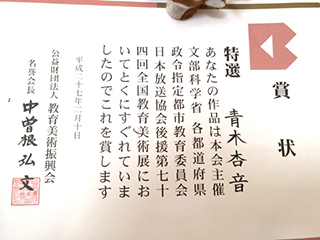 賞状
特選 青木杏音
あなたの作品は本会主催
文部科学省 各都道府県
政令指定都市教育委員会
日本放送協会後援第七十
四回全国教育美術展にお
いてとくにすぐれていま
したのでこれを賞します
平成二十七年二月十日
公益財団法人 教育美術振興会
名誉会長 中曽根弘文